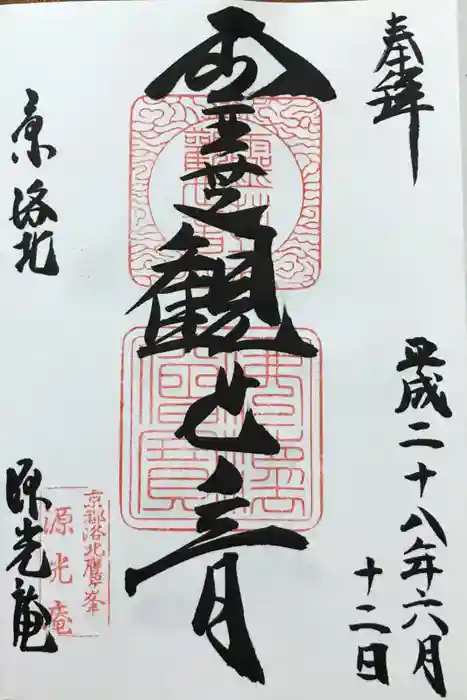 奉拝
平成二十八年六月
十二日
霊芝観世音
佛法
僧寶
京洛北
源光庵
京都洛北鷹峯
源光庵